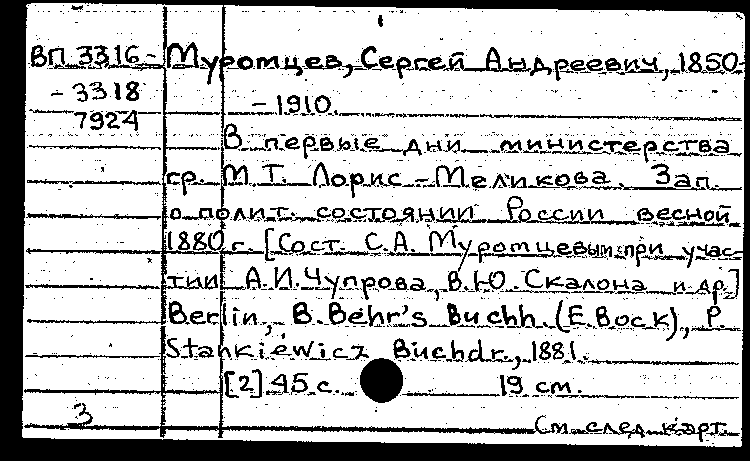 ВП 3316 - Муромцев, Сергей Андреевич, 1850-
- 3318 - 1910.
7924
В первые дни министерства
гр. М.Т. Лорис-Меликова. Зап.
о полит. состоянии России весной
1880 г. [Сост. С.А. Муромцевым при учас-
тии А.И. Чупрова, В.Ю. Скалона и др.]
Berlin, B. Behr's Buchh. (E. Bock), P.
Stankiewicz Buchdr., 1881.
[2] 45 с. 19 cm.
3 См. след. карт.